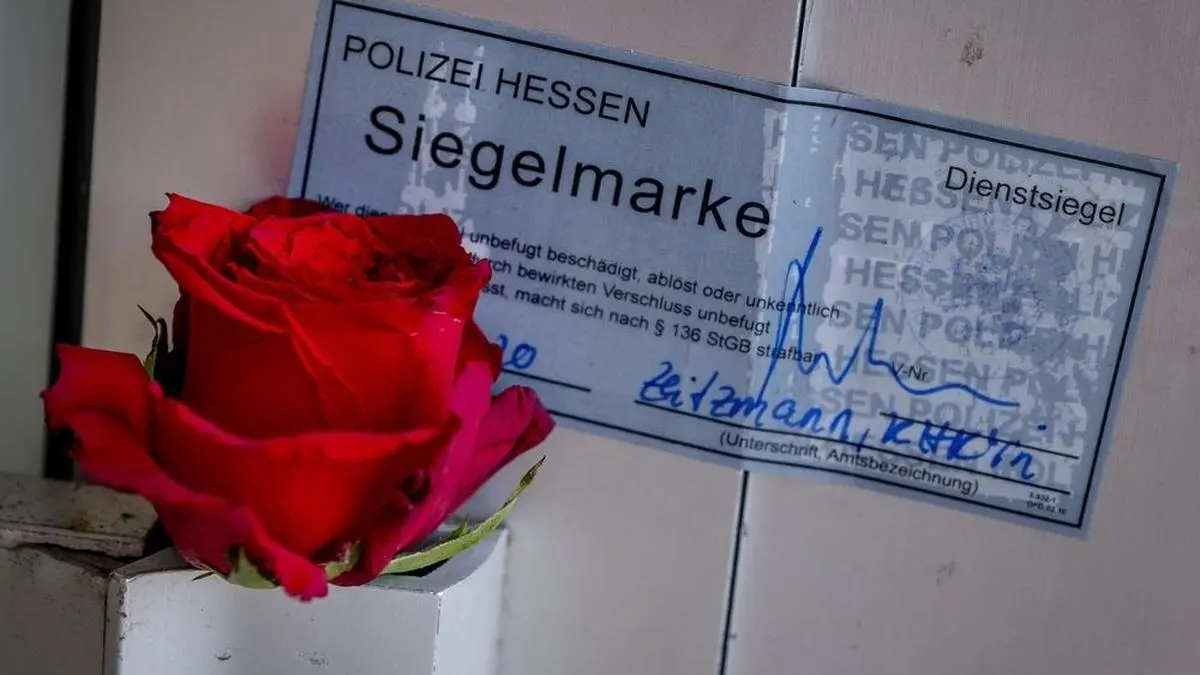 POLIZEI HESSEN
Siegelmarke
Dienstsiegel
Wer die
unbefugt beschädigt, ablöst oder unkenntlich
durch bewirkten Verschluss unbefugt
sst, macht sich nach § 136 StGB strafbar
V-Nr
20
Zeitzmann, KHK'in
(Unterschrift, Amtsbezeichnung)
SEN POLIZEI H
HESSEN
SEN POLIZEI H
HESSEN
SEN POLIZEI
HESSEN
SEN POLIZEI